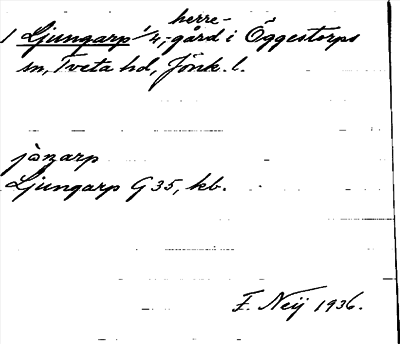 1 Ljungarp 1/4, herre-
gård i Öggestorps
sn, Tveta hd, Jönk. l.
jòŋarp
Ljungarp G 35, kb.
F. Neij 1936.